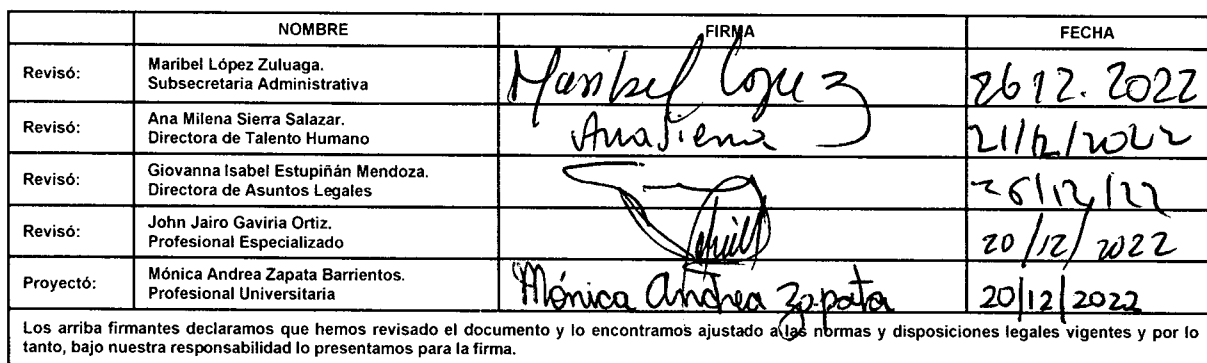 NOMBRE FIRMA FECHA
Revisó: Maribel López Zuluaga.
Subsecretaria Administrativa
Maribel López Z 26 12. 2022
Revisó: Ana Milena Sierra Salazar.
Directora de Talento Humano
Ana Sierra 21/12/2022
Revisó: Giovanna Isabel Estupiñán Mendoza.
Directora de Asuntos Legales
26/12/22
Revisó: John Jairo Gaviria Ortiz.
Profesional Especializado
20/12/2022
Proyectó: Mónica Andrea Zapata Barrientos.
Profesional Universitaria
Mónica Andrea Zapata 20/12/2022
Los arriba firmantes declaramos que hemos revisado el documento y lo encontramos ajustado a las normas y disposiciones legales vigentes y por lo
tanto, bajo nuestra responsabilidad lo presentamos para la firma.